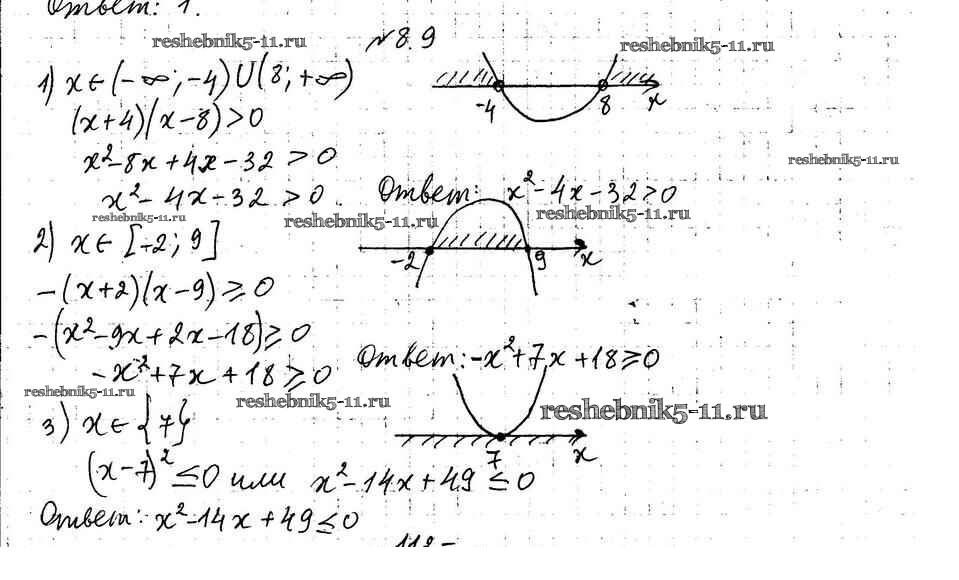 Ответ: 1.
reshebnik5-11.ru
№ 8.9
reshebnik5-11.ru
1) x ∈ (-∞; -4) ∪ (8; +∞)
-4 8 x
(x+4)(x-8) > 0
x² - 8x + 4x - 32 > 0
reshebnik5-11.ru
x² - 4x - 32 > 0. Ответ: x² - 4x - 32 > 0
reshebnik5-11.ru
reshebnik5-11.ru
reshebnik5-11.ru
2) x ∈ [-2; 9]
-2 9 x
-(x+2)(x-9) ≥ 0
-(x² - 9x + 2x - 18) ≥ 0
-x² + 7x + 18 ≥ 0 Ответ: -x² + 7x + 18 ≥ 0
reshebnik5-11.ru
reshebnik5-11.ru
reshebnik5-11.ru
3) x ∈ {7}
7 x
(x-7)² ≤ 0 или x² - 14x + 49 ≤ 0
Ответ: x² - 14x + 49 ≤ 0